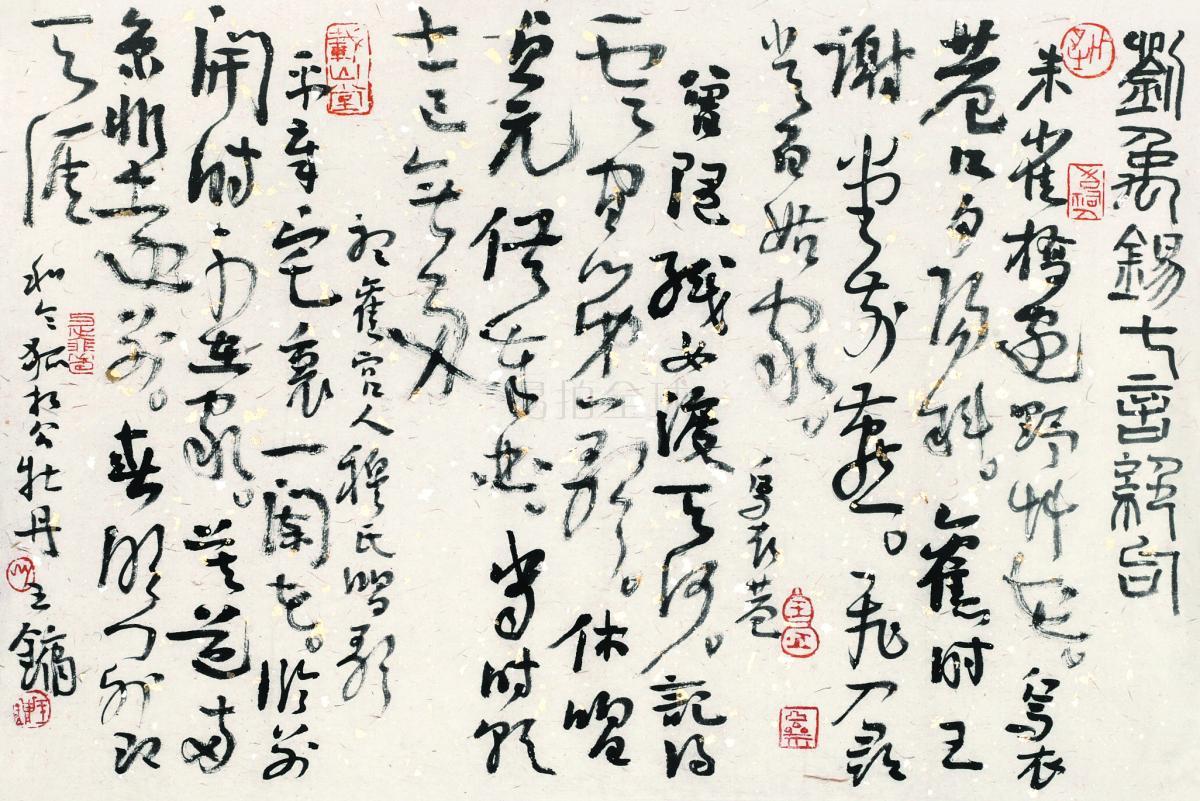 劉禹錫七言絕句
朱雀橋邊野艸花。烏衣
巷口夕陽斜。舊時王
謝堂前燕。飛入尋
常百姓家。
烏衣巷
曾隨織女渡天河。記得
雲間第一歌。休唱
貞元供奉曲。當時朝
士已無多
聽舊宮人穆氏唱歌
平章宅裏一闌花。臨到
開時不在家。莫道兩
京非遠別。春明門外即
天涯
和令狐相公牡丹 王鏞
易拍全球